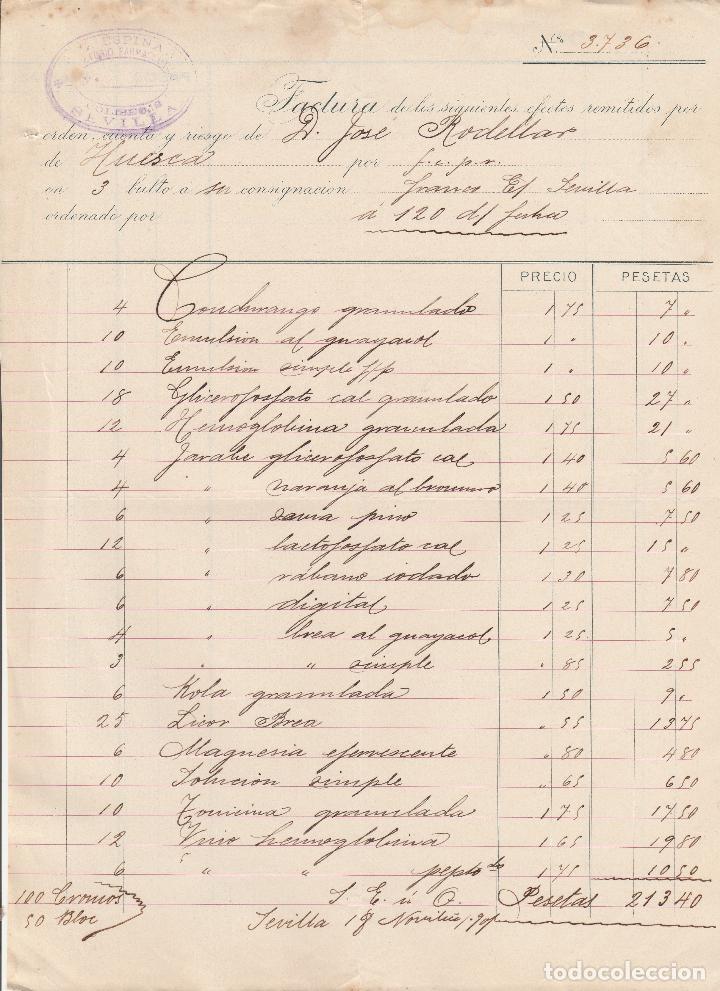 ESPINA
SEVILLA
Nº 3.736
Factura de los siguientes efectos remitidos por
orden, cuenta y riesgo de D. José Rodellar
de Huesca por f. c. p. v.
en 3 bulto a su consignacion franco E/ Sevilla
ordenado por á 120 d/ fecha
PRECIO PESETAS
4 Condurango granulado 1 75 7 "
10 Emulsion al guayacol 1 " 10 "
10 Emulsion simple 1 " 10 "
18 Glicerofosfato cal granulado 1 50 27 "
12 Hemoglobina granulada 1 75 21 "
4 Jarabe glicerofosfato cal 1 40 5 60
4 " naranja al bromuro 1 40 5 60
6 " savia pino 1 25 7 50
12 " lactofosfato cal 1 25 15 "
6 " rábano iodado 1 30 7 80
6 " digital 1 25 7 50
4 " brea al guayacol 1 25 5 "
3 " " simple " 85 2 55
6 Kola granulada 1 50 9 "
25 Licor Brea " 55 13 75
6 Magnesia efervescente " 80 4 80
10 Solucion simple " 65 6 50
10 granulada 1 75 17 50
12 Vino hemoglobina 1 65 19 80
6 " " 1 75 10 50
100 Cromos S. E. ú O. Pesetas 213 40
50 Bloc Sevilla 18
todocoleccion.net